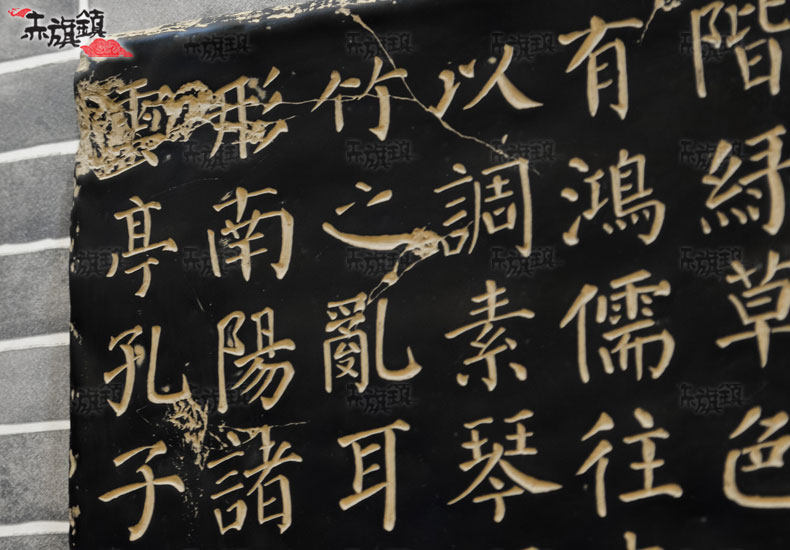 階綠草色
有鴻儒往
以調素琴
竹之亂耳
形南陽諸
雲亭孔子
旗鎮